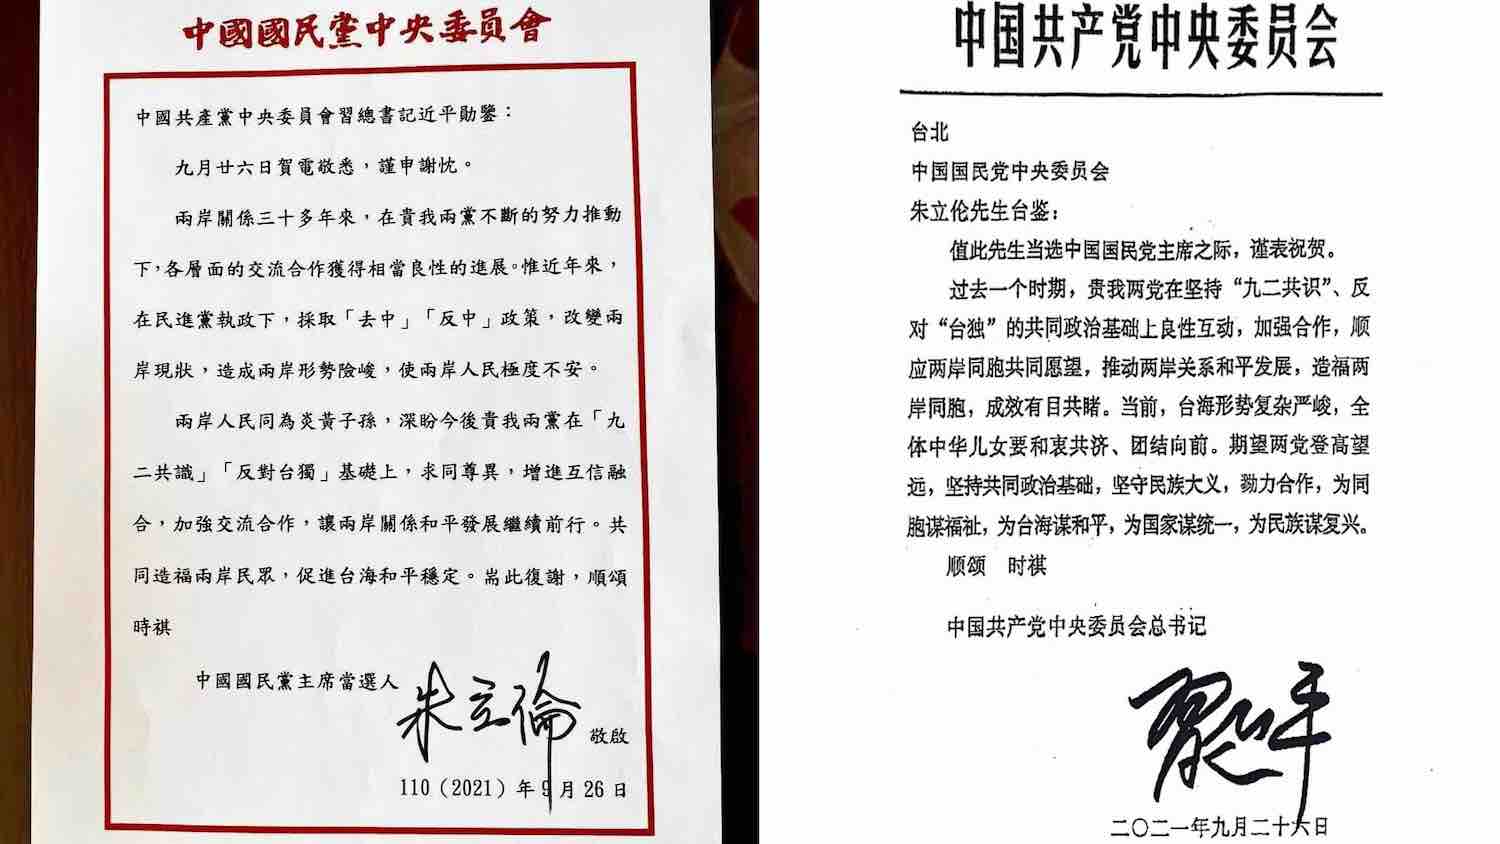 中國國民黨中央委員會
中國共產黨中央委員會習總書記近平勛鑒：
九月廿六日賀電敬悉，謹申謝忱。
兩岸關係三十多年來，在貴我兩黨不斷的努力推動
下，各層面的交流合作獲得相當良性的進展。惟近年來，
在民進黨執政下，採取「去中」「反中」政策，改變兩
岸現狀，造成兩岸形勢險峻，使兩岸人民極度不安。
兩岸人民同為炎黃子孫，深盼今後貴我兩黨在「九
二共識」「反對台獨」基礎上，求同尊異，增進互信融
合，加強交流合作，讓兩岸關係和平發展繼續前行。共
同造福兩岸民眾，促進台海和平穩定。耑此復謝，順頌
時祺
中國國民黨主席當選人 朱立倫 敬啟
110（2021）年9月26日
中国共产党中央委员会
台北
中国国民党中央委员会
朱立伦先生台鉴：
值此先生当选中国国民党主席之际，谨表祝贺。
过去一个时期，贵我两党在坚持“九二共识”、反
对“台独”的共同政治基础上良性互动，加强合作，顺
应两岸同胞共同愿望，推动两岸关系和平发展，造福两
岸同胞，成效有目共睹。当前，台海形势复杂严峻，全
体中华儿女要和衷共济、团结向前。期望两党登高望
远，坚持共同政治基础，坚守民族大义，勠力合作，为同
胞谋福祉，为台海谋和平，为国家谋统一，为民族谋复兴。
顺颂 时祺
中国共产党中央委员会总书记
习近平
二〇二一年九月二十六日